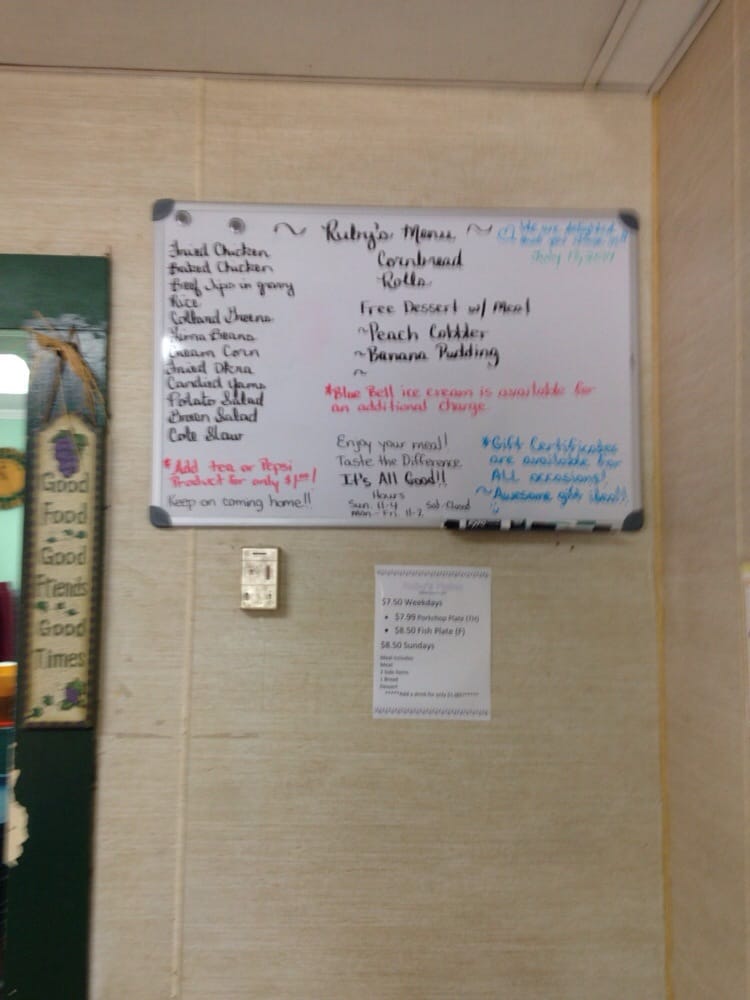 ~ Ruby's Menu ~
Fried Chicken
Baked Chicken
Beef Tips in gravy
Rice
Collard Greens
Lima Beans
Cream Corn
Fried Okra
Candied Yams
Potato Salad
Green Salad
Cole Slaw
*Add tea or Pepsi
Product for only $1.00!
Keep on coming home!!
Cornbread
Rolls
Free Dessert w/ Meal
~Peach Cobbler
~Banana Pudding
~
*Blue Bell ice cream is available for
an additional charge
Enjoy your meal!
Taste the Difference
It's All Good!!
Hours
Sun. 11-4 Sat-Closed
Mon-Fri. 11-2
We are delighted
that you chose us!!
*Gift Certificates
are available for
ALL occasions!
~Awesome gift idea!!
Good
Food
Good
Friends
Good
Times
$7.50 Weekdays
• $7.99 Porkchop Plate (TH)
• $8.50 Fish Plate (F)
$8.50 Sundays
Meal includes
Meat
2 Side Items
1 Bread
Dessert
*****Add a drink for only $1.00!!*****